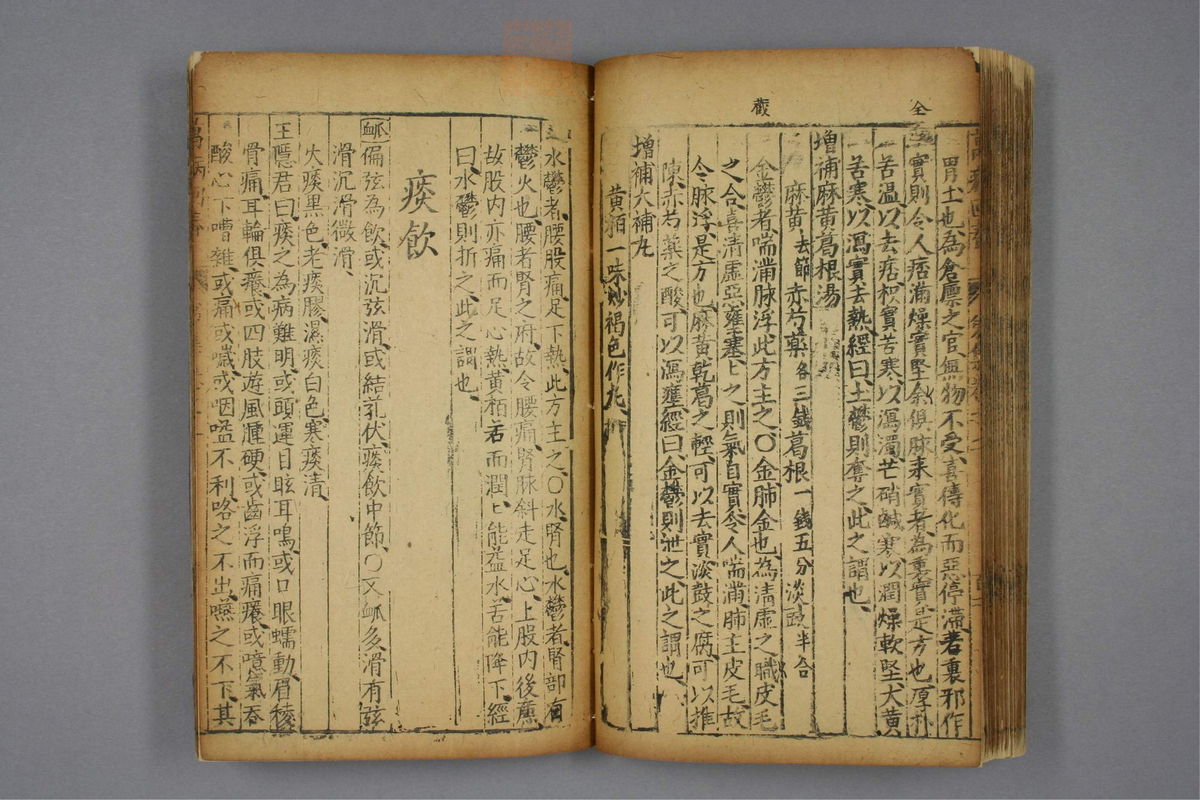 全
觀
胃土也為倉廩之官無物不受喜傳化而惡停滯若裏邪作
實則令人痞滿燥實堅全俱脉来實者為裏實是方也厚朴
苦温以去痞枳實苦寒以瀉濁芒硝鹹寒以潤燥軟堅大黄
苦寒以瀉實去熱經曰土鬱則奪之此之謂也
增補麻黄葛根湯
麻黄去節赤芍藥各三錢葛根一錢五分淡豉半合
金鬱者喘滿脉浮此方主之〇金肺金也為清虛之職皮毛
之合喜清虛惡壅塞〻之則氣自實令人喘滿肺主皮毛故
令脉浮是方也麻黄乾葛之輕可以去實淡豉之腐可以推
陳赤芍藥之酸可以瀉壅經曰金鬱則泄之此之謂也
增補大補丸
黄栢一味炒褐色作丸
水鬱者腰股痛足下熱此方主之〇水腎也水鬱者腎部有
鬱火也腰者腎之府故令腰痛腎脉斜走足心上股内後廉
故股内亦痛而足心熱黄栢苦而潤〻能益水苦能降下經
曰水鬱則折之此之謂也
痰飲
脉偏弦為飲或沉弦滑或結芤伏痰飲中節〇又脉多滑有弦
滑沉滑微滑
火痰黒色老痰膠濕痰白色寒痰清
王隱君曰痰之為病難明或頭運目眩耳鳴或口眼蠕動眉稜
骨痛耳輪俱癢或四肢遊風腫硬或齒浮而痛癢或噫氣吞
酸心下嘈雜或痛或嘁或咽嗌不利咯之不出嚥之不下其